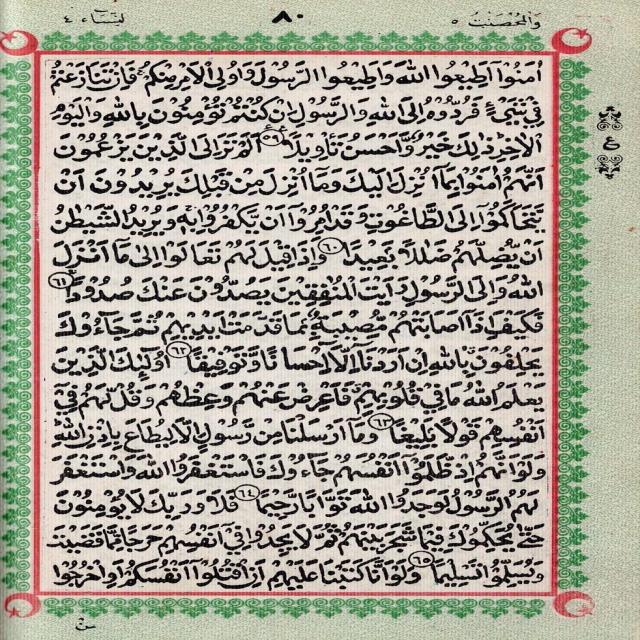 والمحصنت ٥ ٨٠ النساء ٤
اٰمَنُوْٓا اَطِيْعُوا اللّٰهَ وَاَطِيْعُوا الرَّسُوْلَ وَاُولِى الْاَمْرِ مِنْكُمْ ۚ فَاِنْ تَنَازَعْتُمْ
فِيْ شَيْءٍ فَرُدُّوْهُ اِلَى اللّٰهِ وَالرَّسُوْلِ اِنْ كُنْتُمْ تُؤْمِنُوْنَ بِاللّٰهِ وَالْيَوْمِ
الْاٰخِرِ ۗ ذٰلِكَ خَيْرٌ وَّاَحْسَنُ تَأْوِيْلًا ٥٩ اَلَمْ تَرَ اِلَى الَّذِيْنَ يَزْعُمُوْنَ
اَنَّهُمْ اٰمَنُوْا بِمَآ اُنْزِلَ اِلَيْكَ وَمَآ اُنْزِلَ مِنْ قَبْلِكَ يُرِيْدُوْنَ اَنْ
يَّتَحَاكَمُوْٓا اِلَى الطَّاغُوْتِ وَقَدْ اُمِرُوْٓا اَنْ يَّكْفُرُوْا بِهٖ ۗ وَيُرِيْدُ الشَّيْطٰنُ
اَنْ يُّضِلَّهُمْ ضَلٰلًا ۢ بَعِيْدًا ٦٠ وَاِذَا قِيْلَ لَهُمْ تَعَالَوْا اِلٰى مَآ اَنْزَلَ
اللّٰهُ وَاِلَى الرَّسُوْلِ رَاَيْتَ الْمُنٰفِقِيْنَ يَصُدُّوْنَ عَنْكَ صُدُوْدًا ٦١
فَكَيْفَ اِذَآ اَصَابَتْهُمْ مُّصِيْبَةٌ ۢ بِمَا قَدَّمَتْ اَيْدِيْهِمْ ثُمَّ جَاۤءُوْكَ
يَحْلِفُوْنَ بِاللّٰهِ اِنْ اَرَدْنَآ اِلَّآ اِحْسَانًا وَّتَوْفِيْقًا ٦٢ اُولٰۤىِٕكَ الَّذِيْنَ
يَعْلَمُ اللّٰهُ مَا فِيْ قُلُوْبِهِمْ فَاَعْرِضْ عَنْهُمْ وَعِظْهُمْ وَقُلْ لَّهُمْ فِيْٓ
اَنْفُسِهِمْ قَوْلًا ۢ بَلِيْغًا ٦٣ وَمَآ اَرْسَلْنَا مِنْ رَّسُوْلٍ اِلَّا لِيُطَاعَ بِاِذْنِ اللّٰهِ
وَلَوْ اَنَّهُمْ اِذْ ظَّلَمُوْٓا اَنْفُسَهُمْ جَاۤءُوْكَ فَاسْتَغْفَرُوا اللّٰهَ وَاسْتَغْفَرَ
لَهُمُ الرَّسُوْلُ لَوَجَدُوا اللّٰهَ تَوَّابًا رَّحِيْمًا ٦٤ فَلَا وَرَبِّكَ لَا يُؤْمِنُوْنَ
حَتّٰى يُحَكِّمُوْكَ فِيْمَا شَجَرَ بَيْنَهُمْ ثُمَّ لَا يَجِدُوْا فِيْٓ اَنْفُسِهِمْ حَرَجًا مِّمَّا قَضَيْتَ
وَيُسَلِّمُوْا تَسْلِيْمًا ٦٥ وَلَوْ اَنَّا كَتَبْنَا عَلَيْهِمْ اَنِ اقْتُلُوْٓا اَنْفُسَكُمْ اَوِ اخْرُجُوْا
مِنْ